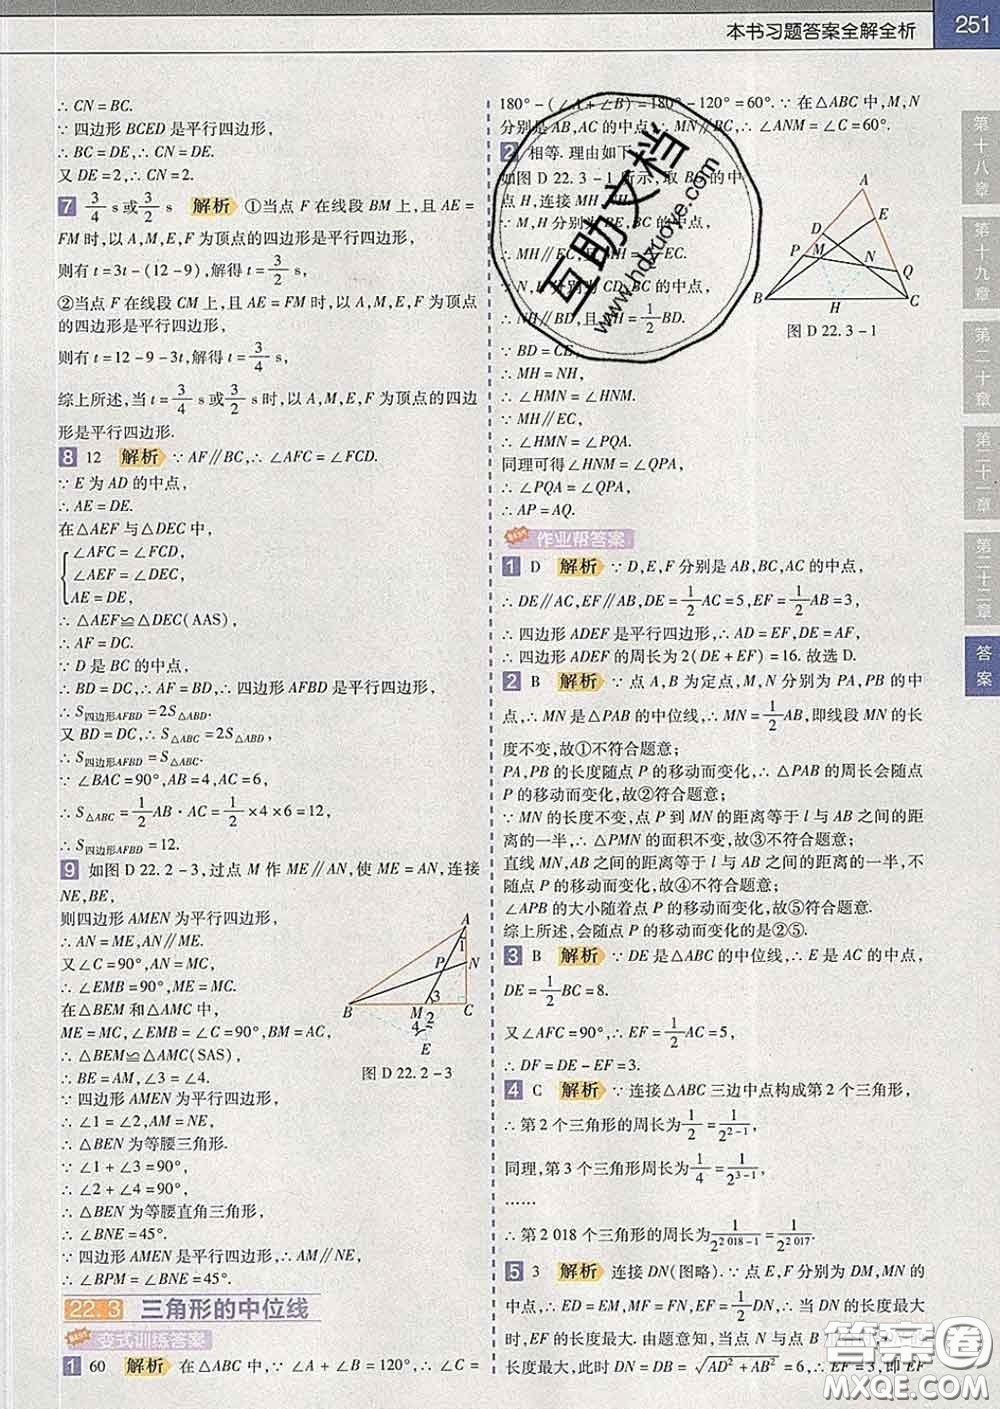 本书习题答案全解全析
251
∴ CN = BC.
∵ 四边形 BCED 是平行四边形,
∴ BC = DE, ∴ CN = DE.
又 DE = 2, ∴ CN = 2.
7 3/4 s 或 3/2 s 解析 ①当点 F 在线段 BM 上,且 AE =
FM 时,以 A,M,E,F 为顶点的四边形是平行四边形,
则有 t = 3t - (12 - 9),解得 t = 3/2 s,
②当点 F 在线段 CM 上,且 AE = FM 时,以 A,M,E,F 为顶点
的四边形是平行四边形,
则有 t = 12 - 9 - 3t,解得 t = 3/4 s,
综上所述,当 t = 3/4 s 或 3/2 s 时,以 A,M,E,F 为顶点的四边
形是平行四边形.
8 12 解析 ∵ AF∥BC, ∴ ∠AFC = ∠FCD.
∵ E 为 AD 的中点,
∴ AE = DE.
在△AEF 与△DEC 中,
∠AFC = ∠FCD,
∠AEF = ∠DEC,
AE = DE,
∴ △AEF≌△DEC(AAS),
∴ AF = DC.
∵ D 是 BC 的中点,
∴ BD = DC, ∴ AF = BD, ∴ 四边形 AFBD 是平行四边形,
∴ S四边形AFBD = 2S△ABD.
又 BD = DC, ∴ S△ABC = 2S△ABD,
∴ S四边形AFBD = S△ABC.
∵ ∠BAC = 90°, AB = 4, AC = 6,
∴ S△ABC = 1/2 AB · AC = 1/2 × 4 × 6 = 12,
∴ S四边形AFBD = 12.
9 如图 D 22.2 - 3,过点 M 作 ME∥AN,使 ME = AN,连接
NE,BE,
则四边形 AMEN 为平行四边形,
∴ AN = ME, AN∥ME.
又∠C = 90°, AN = MC,
∴ ∠EMB = 90°, ME = MC.
在△BEM 和△AMC 中,
ME = MC, ∠EMB = ∠C = 90°, BM = AC,
∴ △BEM≌△AMC(SAS),
∴ BE = AM, ∠3 = ∠4.
∵ 四边形 AMEN 为平行四边形,
∴ ∠1 = ∠2, AM = NE,
∴ △BEN 为等腰三角形.
∵ ∠1 + ∠3 = 90°,
∴ ∠2 + ∠4 = 90°,
∴ △BEN 为等腰直角三角形,
∴ ∠BNE = 45°.
∵ 四边形 AMEN 是平行四边形, ∴ AM∥NE,
∴ ∠BPM = ∠BNE = 45°.
A
1
P
N
3
2
B
M
C
4
E
图 D 22.2 - 3
22.3 三角形的中位线
变式训练答案
1 60 解析 在△ABC 中, ∵ ∠A + ∠B = 120°, ∴ ∠C =
180° - (∠A + ∠B) = 180° - 120° = 60°. ∵ 在△ABC 中,M,N
分别是 AB,AC 的中点, ∴ MN∥BC, ∴ ∠ANM = ∠C = 60°.
2 相等. 理由如下
如图 D 22.3 - 1 所示,取 BC 的中
点 H,连接 MH,NH.
∵ M,H 分别为 BE,BC 的中点,
∴ MH∥EC
∴ NH∥BD,且 NH = 1/2 BD.
∵ BD = CE,
∴ MH = NH,
∴ ∠HMN = ∠HNM.
∵ MH∥EC,
∴ ∠HMN = ∠PQA.
同理可得∠HNM = ∠QPA,
∴ ∠PQA = ∠QPA,
∴ AP = AQ.
A
D
E
P
M
N
Q
B
H
C
图 D 22.3 - 1
作业帮答案
1 D 解析 ∵ D,E,F 分别是 AB,BC,AC 的中点,
∴ DE∥AC, EF∥AB, DE = 1/2 AC = 5, EF = 1/2 AB = 3,
∴ 四边形 ADEF 是平行四边形, ∴ AD = EF, DE = AF,
∴ 四边形 ADEF 的周长为 2(DE + EF) = 16. 故选 D.
2 B 解析 ∵ 点 A,B 为定点,M,N 分别为 PA,PB 的中
点, ∴ MN 是△PAB 的中位线, ∴ MN = 1/2 AB,即线段 MN 的长
度不变,故①不符合题意;
PA,PB 的长度随点 P 的移动而变化, ∴ △PAB 的周长会随点
P 的移动而变化,故②符合题意;
∵ MN 的长度不变,点 P 到 MN 的距离等于 l 与 AB 之间的距离
的一半, ∴ △PMN 的面积不变,故③不符合题意;
直线 MN,AB 之间的距离等于 l 与 AB 之间的距离的一半,不
随点 P 的移动而变化,故④不符合题意;
∠APB 的大小随着点 P 的移动而变化,故⑤符合题意.
综上所述,会随点 P 的移动而变化的是②⑤.
3 B 解析 ∵ DE 是△ABC 的中位线, ∴ E 是 AC 的中点,
DE = 1/2 BC = 8.
又∠AFC = 90°, ∴ EF = 1/2 AC = 5,
∴ DF = DE - EF = 3.
4 C 解析 ∵ 连接△ABC 三边中点构成第 2 个三角形,
∴ 第 2 个三角形的周长为 1/2 = 1/2^(2-1),
同理,第 3 个三角形周长为 1/4 = 1/2^(3-1),
……
∴ 第 2 018 个三角形的周长为 1/2^(2 018-1) = 1/2^(2 017).
5 3 解析 连接 DN(图略). ∵ 点 E,F 分别为 DM,MN 的
中点, ∴ ED = EM, MF = FN, EF = 1/2 DN, ∴ DN 的长度最大
时,EF 的长度最大. 由题意知,当点 N 与点 B 重合时,DN 的
长度最大,此时 DN = DB = √(AD² + AB²) = 6, ∴ EF = 3,即 EF
第十八章
第十九章
第二十章
第二十一章
第二十二章
答案
互助文档
www.hdzuoye.com
答案卷
MXQE.COM